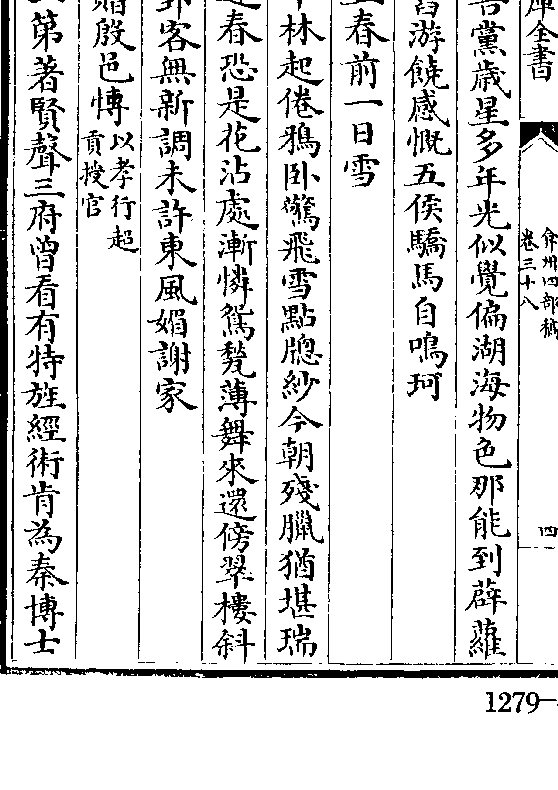 庫全書
弇州四部稿
卷三十八
四
吾黨歲星多年光似覺偏湖海物色那能到薜蘿
舊游饒感慨五侯驕馬自鳴珂
立春前一日雪
林起倦鴉臥驚飛雪點牕紗今朝殘臘猶堪瑞
春恐是花沾處漸憐鴛甃薄舞來還傍翠樓斜
郢客無新調未許東風媚謝家
贈殷邑慱以孝行超
貢授官
第著賢聲三府曾看有特旌經術肯為秦博士
1279